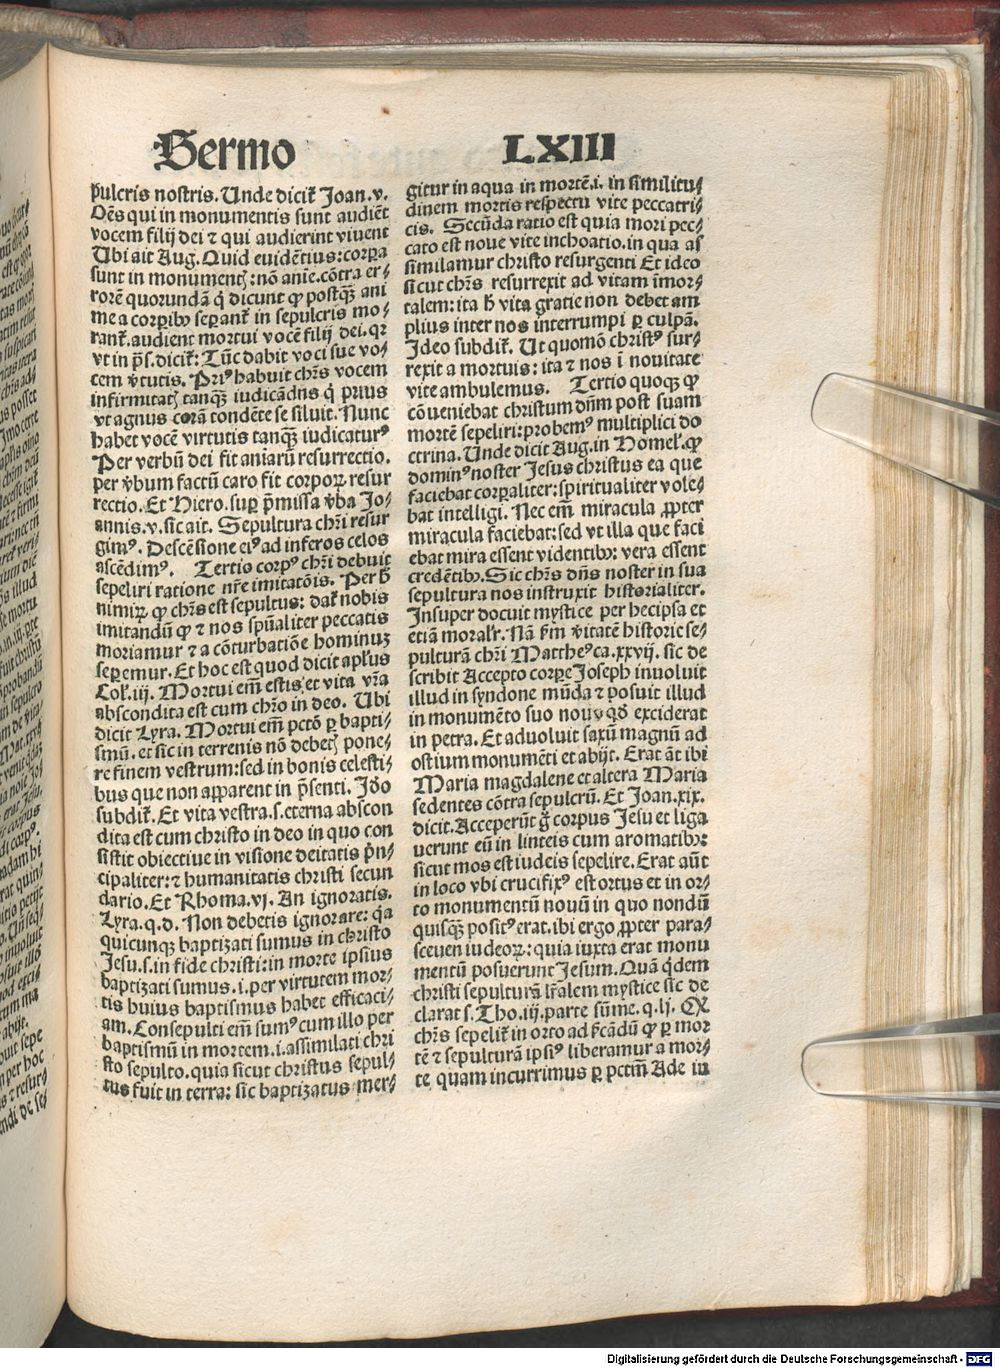 Sermo LXIII
pulcris nostris. Unde dicit̃ Joan. v.
Oẽs qui in monumentis sunt audiẽt
vocem filij dei ⁊ qui audierint viuent
Ubi ait Aug. Quid euidẽtius: corpꝛa
sunt in monumentꝭ: nõ anie. cõtra er⸗
rorẽ quorundã q̇ dicunt ꝙ postqꝫ̃ ani
me a corpꝛibꝰ sepꝛant̃ in sepulcris mo⸗
rant̃. audient mortui vocẽ filij dei. qꝛ
vt in p̃s. dicit̃: Tũc dabit voci sue vo⸗
cem v̾tutis. Priꝰ habuit chꝛs̃ vocem
infirmitatꝭ tanqꝫ̃ iudicãdns q̇ prius
vt agnus corã tondẽte se siluit. Nunc
habet vocẽ virtutis tanqꝫ̃ iudicaturꝰ
Per verbũ dei fit aniarũ resurrectio.
per v̾bum factũ caro fit corpoꝝ resur
rectio. Et Hiero. suꝑ p̃missa v̾ba Jo⸗
annis. v. sic ait. Sepultura chꝛi̇ resur
gimꝰ. Descẽsione eiꝰ ad inferos celos
ascẽdimꝰ. Tertio corpꝰ chꝛi̇ debuit
sepeliri ratione nr̃e imitatõis. Per h̾
nimiꝝ ꝙ chꝛs̃ est sepultus: dat̃ nobis
imitandũ ꝙ ⁊ nos spũaliter peccatis
moriamur ⁊ a cõturbatiõe hominuꝫ
sepꝛemur. Et hoc est quod dicit apl̃us
Col̃. iij. Mortui em̃ estis et vita vr̃a
abscondita est cum chꝛo in deo. Ubi
dicit Lyra. Mortui em̃ pctõ ꝑ bapti⸗
smũ. et sic in terrenis nõ debetꝭ pone⸗
re finem vestrum: sed in bonis celesti⸗
bus que non apparent in p̃senti. Jdo̾
subdit̃. Et vita vestra. s. eterna abscon
dita est cum christo in deo in quo con
sistit obiectiue in visione deitatis pn̾⸗
cipaliter: ⁊ humanitatis christi secun
dario. Et Rhoma. vj. An ignoratis.
Lyra. q. d. Non debetis ignorare: q̇a
quicunqꝫ baptizati sumus in christo
Jesu. s. in fide christi: in morte ipsius
baptizati sumus. i. per virtutem mor⸗
tis huius baptismus habet efficaci⸗
am. Consepulti em̃ sumꝰ cum illo per
baptismũ in mortem. i. assimilati chri
sto sepulto. quia sicut christus sepul⸗
tus fuit in terra: sic baptizatus mer⸗
gitur in aqua in mortẽ. i. in similitu⸗
dinem mortis respectu vite peccatri⸗
cis. Secũda ratio est quia mori pec⸗
cato est noue vite inchoatio. in qua as
similamur christo resurgenti Et ideo
sicut chꝛs̃ resurrexit ad vitam im̃or⸗
talem: ita h̾ vita gratie non debet am
plius inter nos interrumpi ꝑ culpã.
Jdeo subdit̃. Ut quomõ christꝰ sur⸗
rexit a mortuis: ita ⁊ nos ĩ nouitate
vite ambulemus. Tertio quoqꝫ ꝙ
cõueniebat christum dñm post suam
mortẽ sepeliri: probemꝰ multiplici do
ctrina. Unde dicit Aug. in Homel̃. ꝙ
dominꝰ noster Jesus christus ea que
faciebat corpꝛaliter: spiritualiter vole⸗
bat intelligi. Nec em̃ miracula ꝓpter
miracula faciebat: sed vt illa que faci
ebat mira essent videntibꝫ: vera essent
credẽtibꝫ. Sic chꝛs̃ dñs noster in sua
sepultura nos instruxit historialiter.
Insuper docuit mystice per hec ipsa et
etiã moralr̃. Nã ẜm v̾itatẽ historie se⸗
pulturã chꝛi̇ Mattheꝰ ca. xxvij. sic de
scribit Accepto corpꝛe Joseph inuoluit
illud in syndone mũda ⁊ posuit illud
in monumẽto suo nouo qd̾ exciderat
in petra. Et aduoluit saxũ magnũ ad
ostium monumẽti et abijt. Erat aũt ibi
Maria magdalene et altera Maria
sedentes cõtra sepulcrũ. Et Joan. xix.
dicit. Acceperũt g̾ corpus Jesu et liga
uerunt eũ in linteis cum aromatibꝫ:
sicut mos est iudeis sepelire. Erat aũt
in loco vbi crucifixꝰ est ortus et in or⸗
to monumentũ nouũ in quo nondũ
quisqꝫ̃ positꝰ erat. ibi ergo ꝓpter para⸗
sceuen iudeoꝝ: quia iuxta erat monu
mentũ posuerunt Jesum. Quã q̇dem
christi sepulturã lr̃alem mystice sic de
clarat s. Tho. iij. parte sũme. q. lj. Ex
chꝛs̃ sepelit̃ in orto ad ẜcãdũ ꝙ ꝑ mor
tẽ ⁊ sepulturã ipsiꝰ liberamur a mor⸗
te quam incurrimus ꝑ pctm̃ Ade in
Digitalisierung gefördert durch die Deutsche Forschungsgemeinschaft - DFG